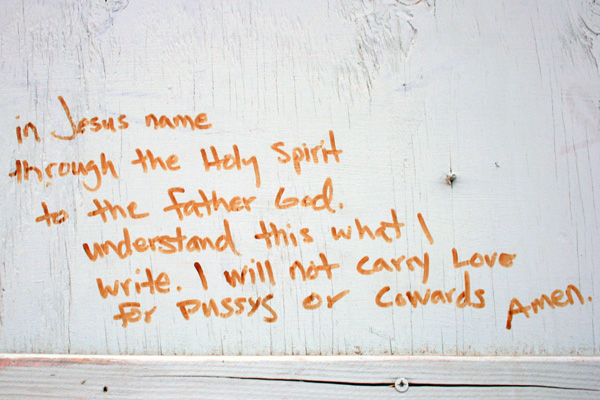 in Jesus name
through the Holy Spirit
to the father God.
understand this what I
write. I will not carry Love
for pussys or Cowards Amen.